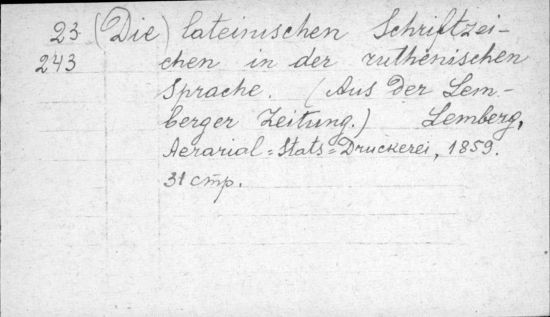 23 (Die) lateinischen Schriftzei-
243 chen in der ruthenischen
Sprache. (Aus der Lem-
berger Zeitung.) Lemberg,
Aerarial=Stats=Druckerei, 1859.
31 стр.